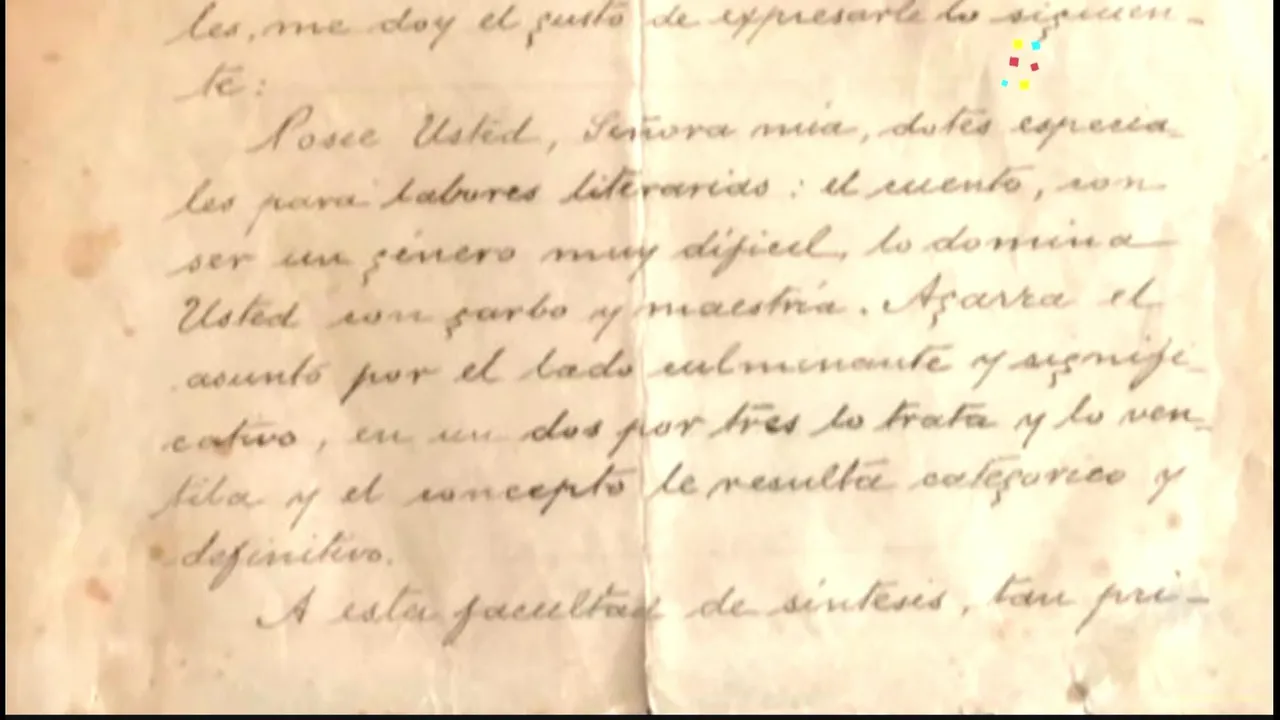 les, me doy el gusto de expresarle lo siguien-
te:
Posee Usted, Señora mía, dotes especia-
les para labores literarias: el cuento, con
ser un género muy difícil, lo domina
Usted con garbo y maestría. Agarra el
asunto por el lado culminante y signifi-
cativo, en un dos por tres lo trata y lo ven-
tila y el concepto le resulta categorico y
definitivo.
A esta facultad de síntesis, tan pri-